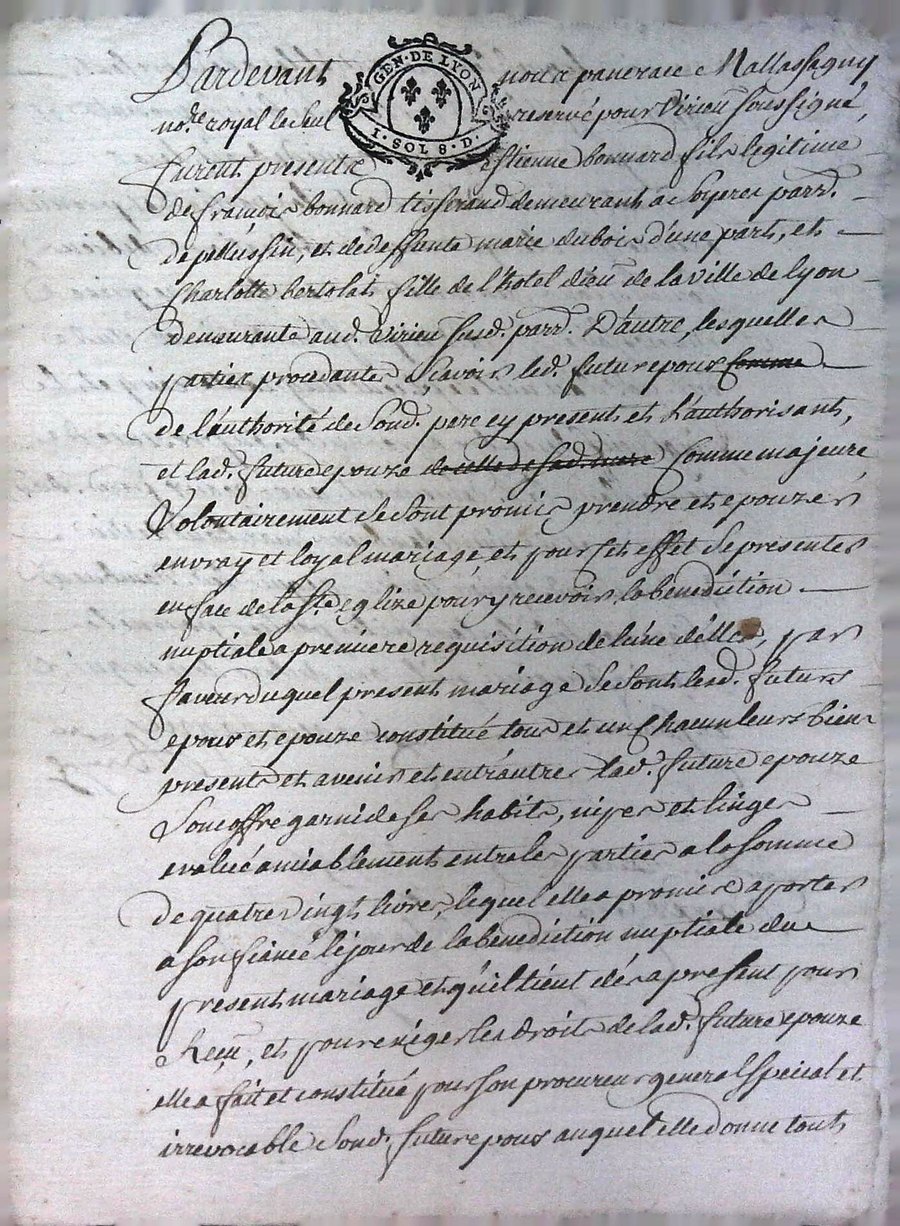 Pardevant nottre panerace Mallassagny
GEN · DE LYON
1 · SOL 8 · D ·
no.re royal le seul reservé pour Virieu soussigné,
furent presents Estienne bonnard fils legitime
de françois bonnard tisserand demeurant a Soyeres parr.
de pellussin, et de deffunte marie dubois d'une part, et
Charlotte bertolat fille de l'hotel dieu de la ville de lyon
demeurante aud. Virieu susd. parr. D'autre, lesquelles
parties procedantes Sçavoir led. futur epoux comme
de l'authorité de Sond. pere cy present et l'authorisant,
et lad. future epouze de celle de sad. mere Comme majeure
Volontairement Se sont promis prendre et epouzer
en vray et loyal mariage, et pour cet effet Se presenter
en face de la Ste eglize pour y recevoir la benediction
nuptiale a premiere requisition de l'une d'elles, par
faveur duquel present mariage Se sont lesd. futurs
epoux et epouze constitué tous et un Chacun leurs biens
presents et avenir et entr'autres lad. future epouze
Son coffre garni de ses habits, nipes et linges
evalué amiablement entre les parties a la somme
de quatre vingt livres, lequel elle a promis aporter
a son fiancé le jour de la benediction nuptiale du
present mariage et qu'il tient dés a present pour
Reçu, et pour exiger les droits de lad. future epouze
elle a fait et constitué pour son procureur general Special et
irrevocable Sond. futur epoux auquel elle donne tout